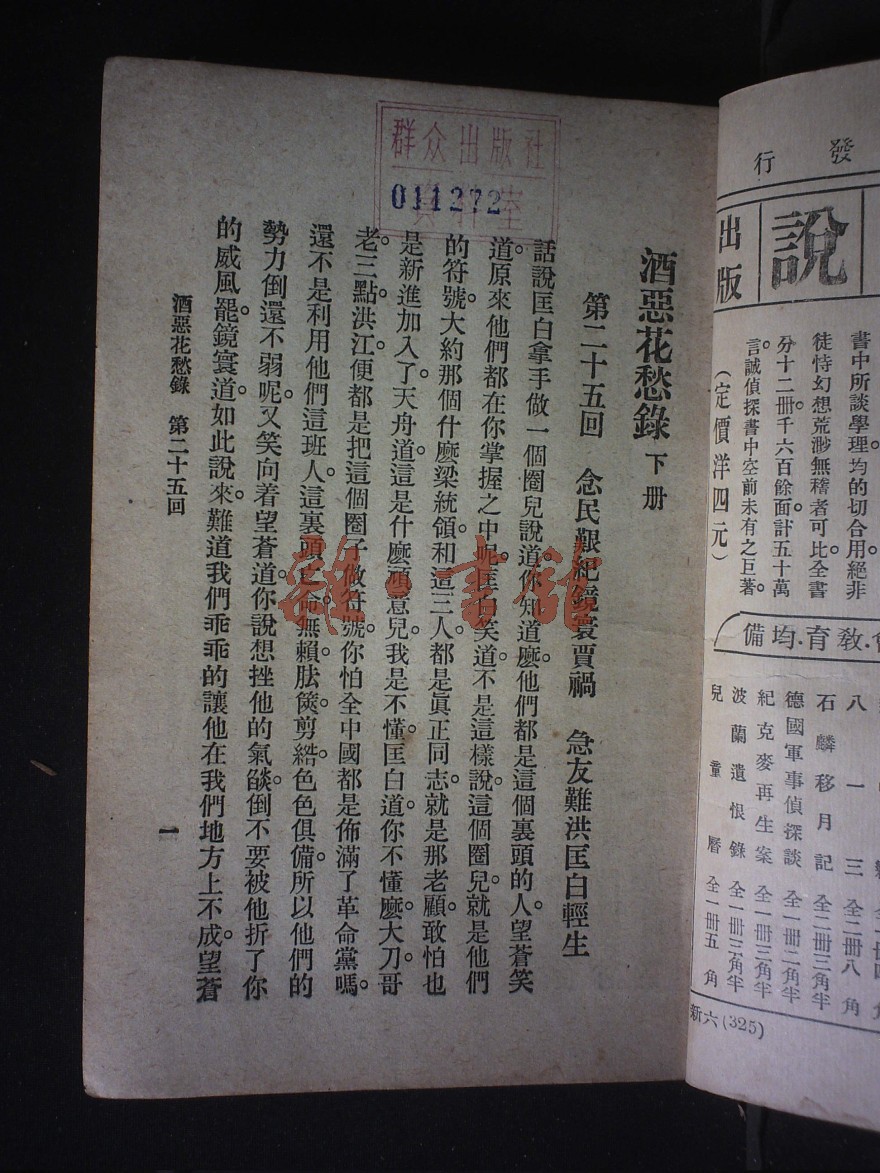 群众出版社
011272
酒惡花愁錄 下册
第二十五回 念民艱祀鏡寰賈禍 急友難洪匡白輕生
話說匡白拿手做一個圈兒說道你知道麼他們都是這個裏頭的人。望蒼笑
道。原來他們都在你掌握之中呢。匡白笑道。不是這樣說。這個圈兒。就是他們
的符號。大約那個什麼梁統領。和這三人。都是眞正同志。就是那老顧。敢怕也
是新進加入了。天舟道。這是什麼頑意兒。我是不懂。匡白道。你不懂麼。大刀哥
老。三點洪江。便都是把這個圈子做符號。你怕全中國都是佈滿了革命黨嗎。
還不是利用他們這班人。這裏頭亡命無賴胠篋剪綹。色色俱備。所以他們的
勢力倒還不弱呢。又笑向着望蒼道。你說想挫他的氣燄。倒不要被他折了你
的威風罷。鏡寰道。如此說來。難道我們乖乖的讓他在我們地方上不成。望蒼
酒惡花愁錄 第二十五回
一
雜·書館
發行
說
出版
書中所談學理。均的切合用。絕非
徒恃幻想荒渺無稽者可比。全書
分十二册。千六百餘面。計五十萬
言。誠偵探書中空前未有之巨著。
(定價洋四元)
教育·均備
八一三 全二册八角
石麟移月記 全二册三角半
德國軍事偵探談 全一册二角半
紀克麥再生案 全一册三角半
波蘭遺恨錄 全一册三角半
兒童曆 全一册五角
新六(325)